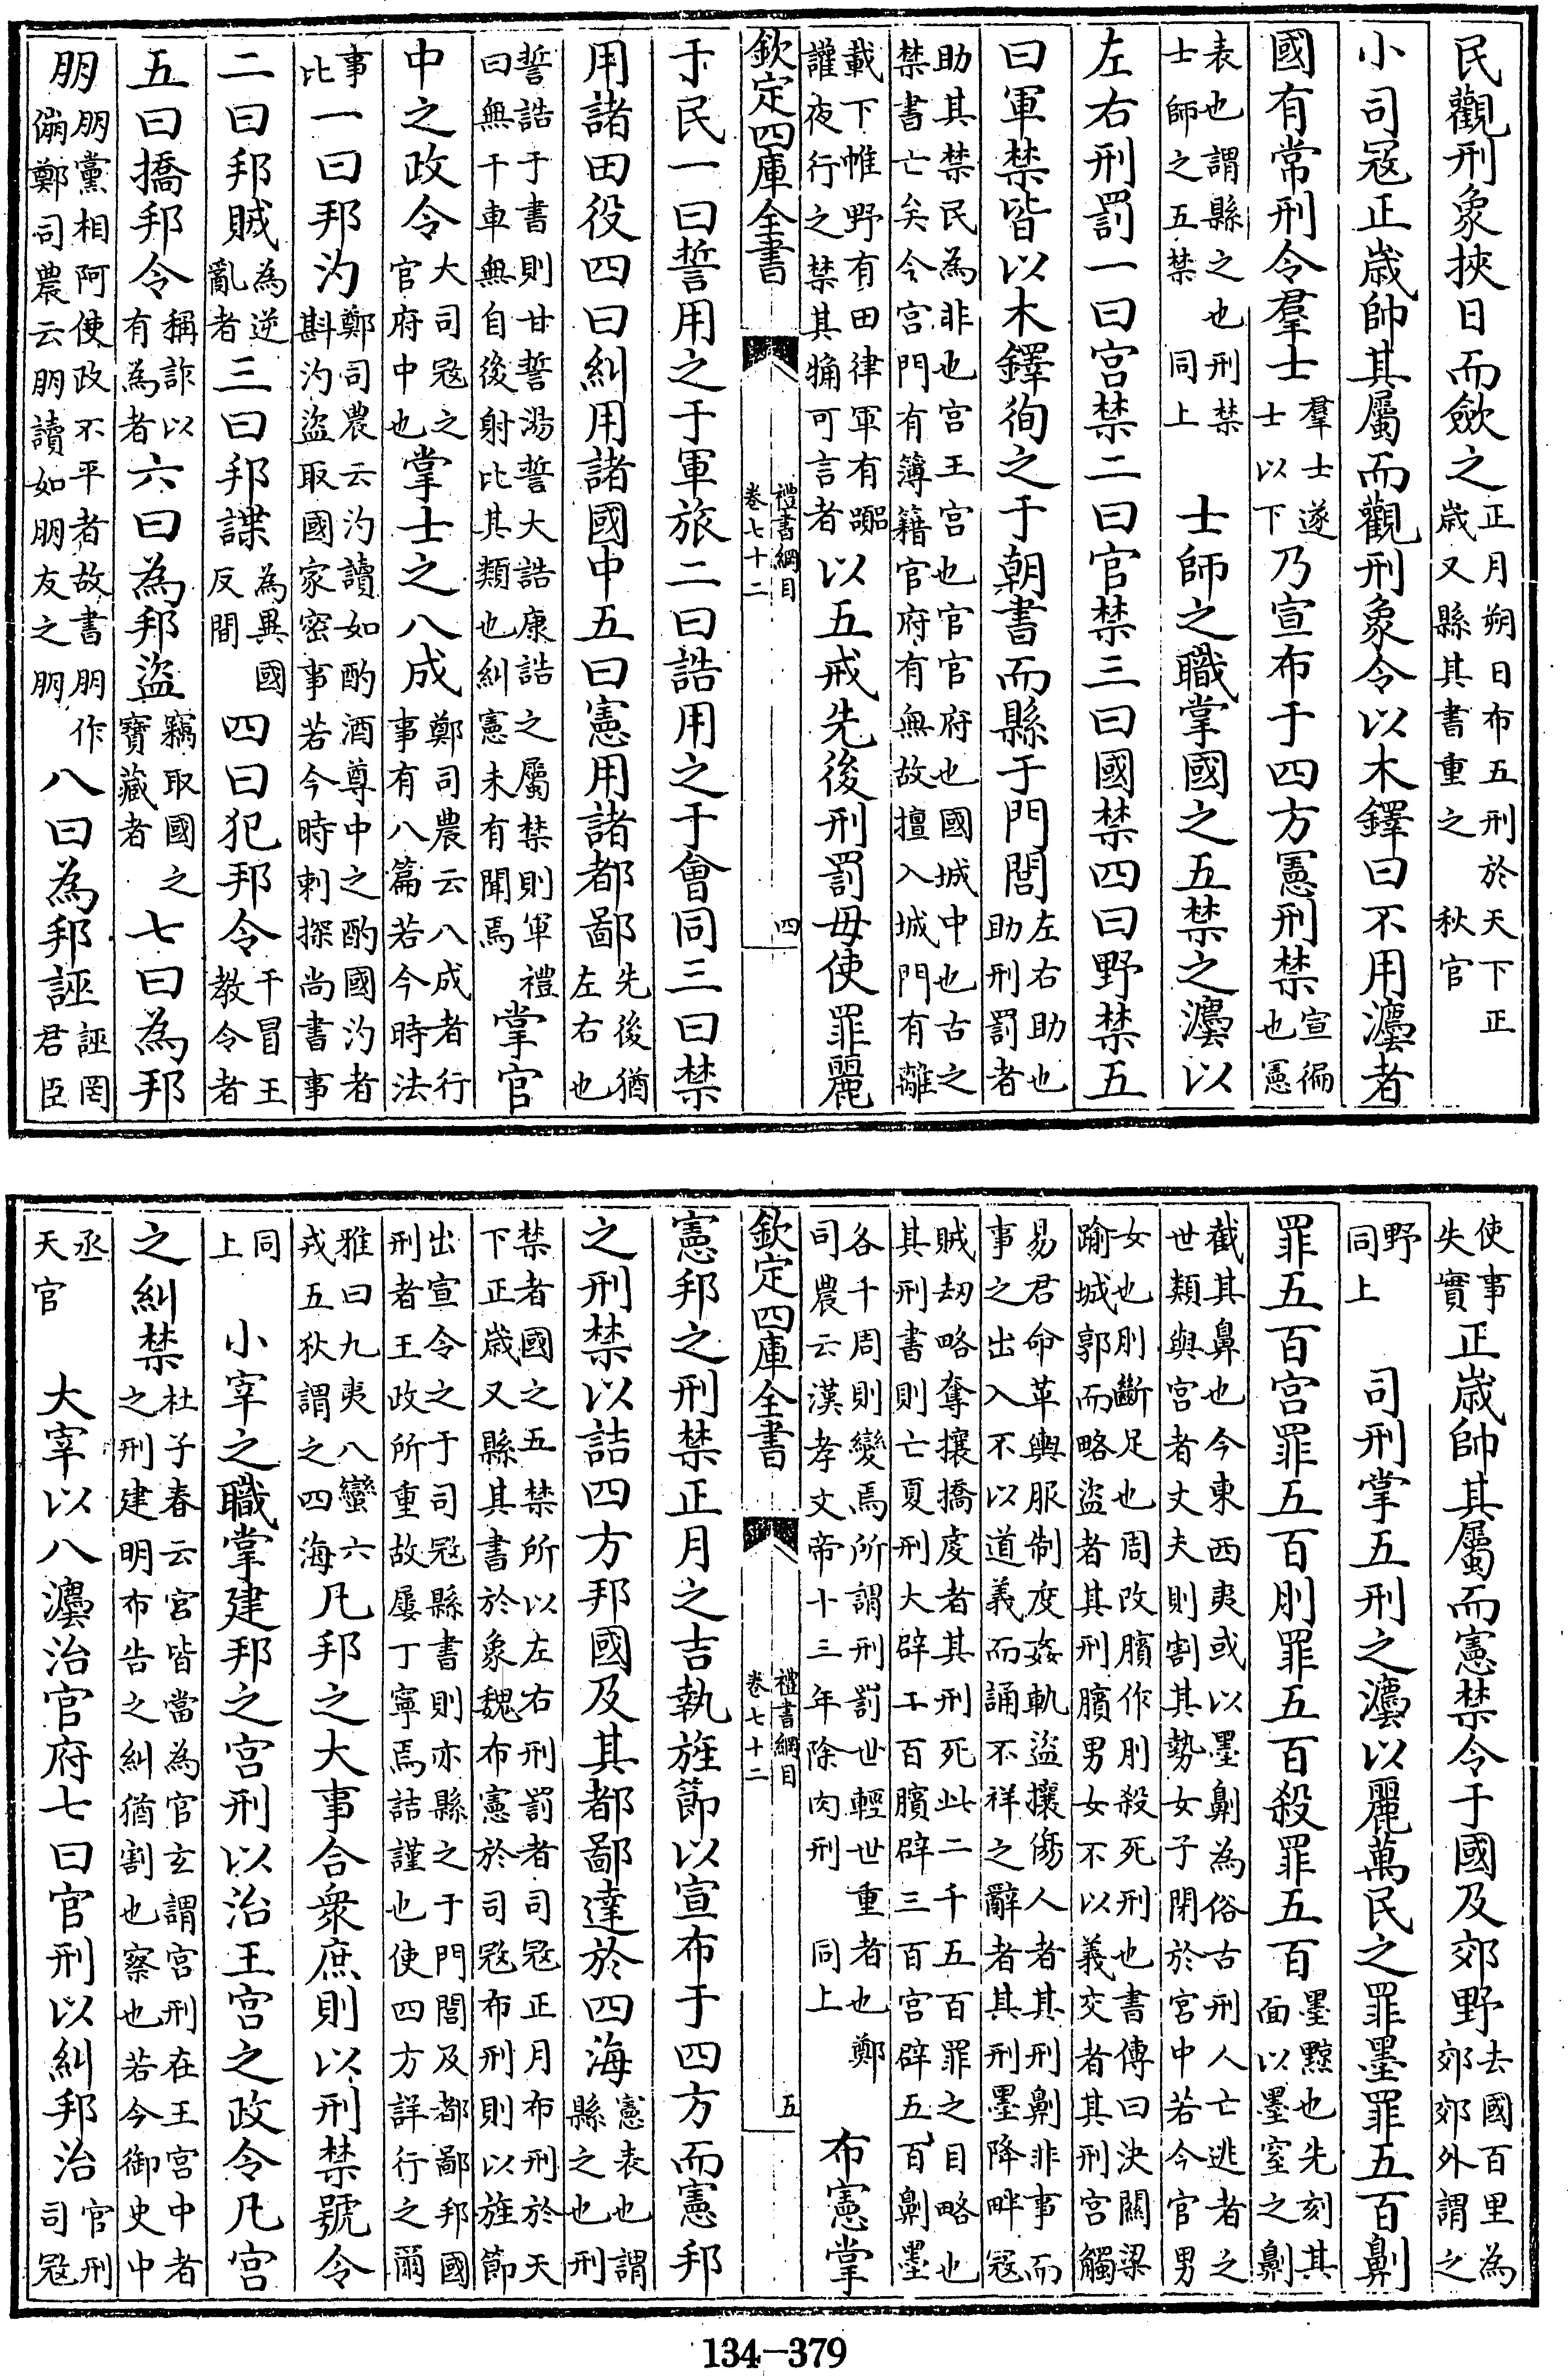 民觀刑象挾日而斂之正月朔日布五刑於天下正歲又縣其書重之　秋官
小司冦正歲帥其屬而觀刑象令以木鐸曰不用灋者
國有常刑令羣士羣士遂士以下乃宣布于四方憲刑禁宣徧也憲
表也謂縣之也刑禁士師之五禁　同上　士師之職掌國之五禁之灋以
左右刑罰一曰宫禁二曰官禁三曰國禁四曰野禁五
曰軍禁皆以木鐸徇之于朝書而縣于門閭左右助也助刑罰者
助其禁民為非也宫王宫也官官府也國城中也古之禁書亡矣今宫門有簿籍官府有無故擅入城門有離
載下帷野有田律軍有嚻讙夜行之禁其觕可言者以五戒先後刑罰毋使罪麗
欽定四庫全書　禮書綱目卷七十二　四
于民一曰誓用之于軍旅二曰誥用之于會同三曰禁
用諸田役四曰糾用諸國中五曰憲用諸都鄙先後猶左右也
誓誥于書則甘誓湯誓大誥康誥之屬禁則軍禮曰無干車無自後射比其類也糾憲未有聞焉掌官
中之政令大司冦之官府中也掌士之八成鄭司農云八成者行事有八篇若今時法
事比一曰邦汋鄭司農云汋讀如酌酒尊中之酌國汋者斟汋盜取國家密事若今時刺探尚書事
二曰邦賊為逆亂者三曰邦諜為異國反間四曰犯邦令干冒王教令者
五曰撟邦令稱詐以有為者六曰為邦盜竊取國之寶藏者七曰為邦
朋朋黨相阿使政不平者故書朋作傰鄭司農云朋讀如朋友之朋八曰為邦誣誣罔君臣
使事失實正歲帥其屬而憲禁令于國及郊野去國百里為郊郊外謂之
野　同上　司刑掌五刑之灋以麗萬民之罪墨罪五百劓
罪五百宫罪五百刖罪五百殺罪五百墨黥也先刻其面以墨窒之劓
截其鼻也今東西夷或以墨劓為俗古刑人亡逃者之世類與宫者丈夫則割其勢女子閉於宫中若今官男
女也刖斷足也周改臏作刖殺死刑也書傳曰決關梁踰城郭而略盜者其刑臏男女不以義交者其刑宫觸
易君命革輿服制度姦軌盜攘傷人者其刑劓非事而事之出入不以道義而誦不祥之辭者其刑墨降畔冦
賊刼略奪攘撟䖍者其刑死此二千五百罪之目略也其刑書則亡夏刑大辟二百臏辟三百宫辟五百劓墨
各千周則變焉所謂刑罰世輕世重者也鄭司農云漢孝文帝十三年除肉刑　同上　布憲掌
欽定四庫全書　禮書綱目卷七十二　五
憲邦之刑禁正月之吉執旌節以宣布于四方而憲邦
之刑禁以詰四方邦國及其都鄙達於四海憲表也謂縣之也刑
禁者國之五禁所以左右刑罰者司冦正月布刑於天下正歲又縣其書於象魏布憲於司冦布刑則以旌節
出宣令之于司冦縣書則亦縣之于門閭及都鄙邦國刑者王政所重故屢丁寧焉詰謹也使四方詳行之爾
雅曰九夷八蠻六戎五狄謂之四海凡邦之大事合衆庶則以刑禁號令
同上　小宰之職掌建邦之宫刑以治王宫之政令凡宫
之糾禁杜子春云宫皆當為官玄謂宫刑在王宫中者之刑建明布告之糾猶割也察也若今御史中
丞　天官　大宰以八灋治官府七曰官刑以糾邦治官刑司冦
134—379